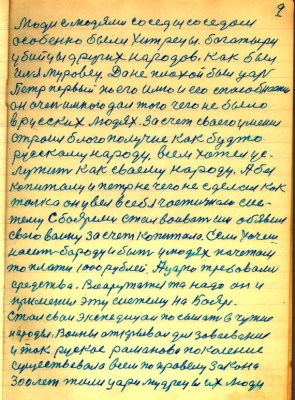 9
Люди с людями соседи соседом
особенно были Хитрецы. богатыри
убийцы других народов. Как был
Илья Муровец, Да не плохой был царь
Петр первый по его имю и его способности
он очен много дал того чего не было
в русских людях. За счет своего умения
строи благополучие Как будто
рускаму народу, всем хотел ус-
лужит Как своему народу. А без
копиталу и петр не чего не сделал Как
только он увел в себя частичную сис-
тему С боярями стал воиват им обявил
свою вайну За счет Копитала. Если Хочеш
насит бароду и быт у людях в почете
то плати 1000 рублей. Нужно требовали
средства. Вооружатся то надо он и
применил эту систему на Бояр.
Стал сваи экспедиции посылат в чужие
народы. Воины открывал для завоевания
и так руское романово поколение
существовало всем по правелу закона
300 лет жили цари мудрецы их люди